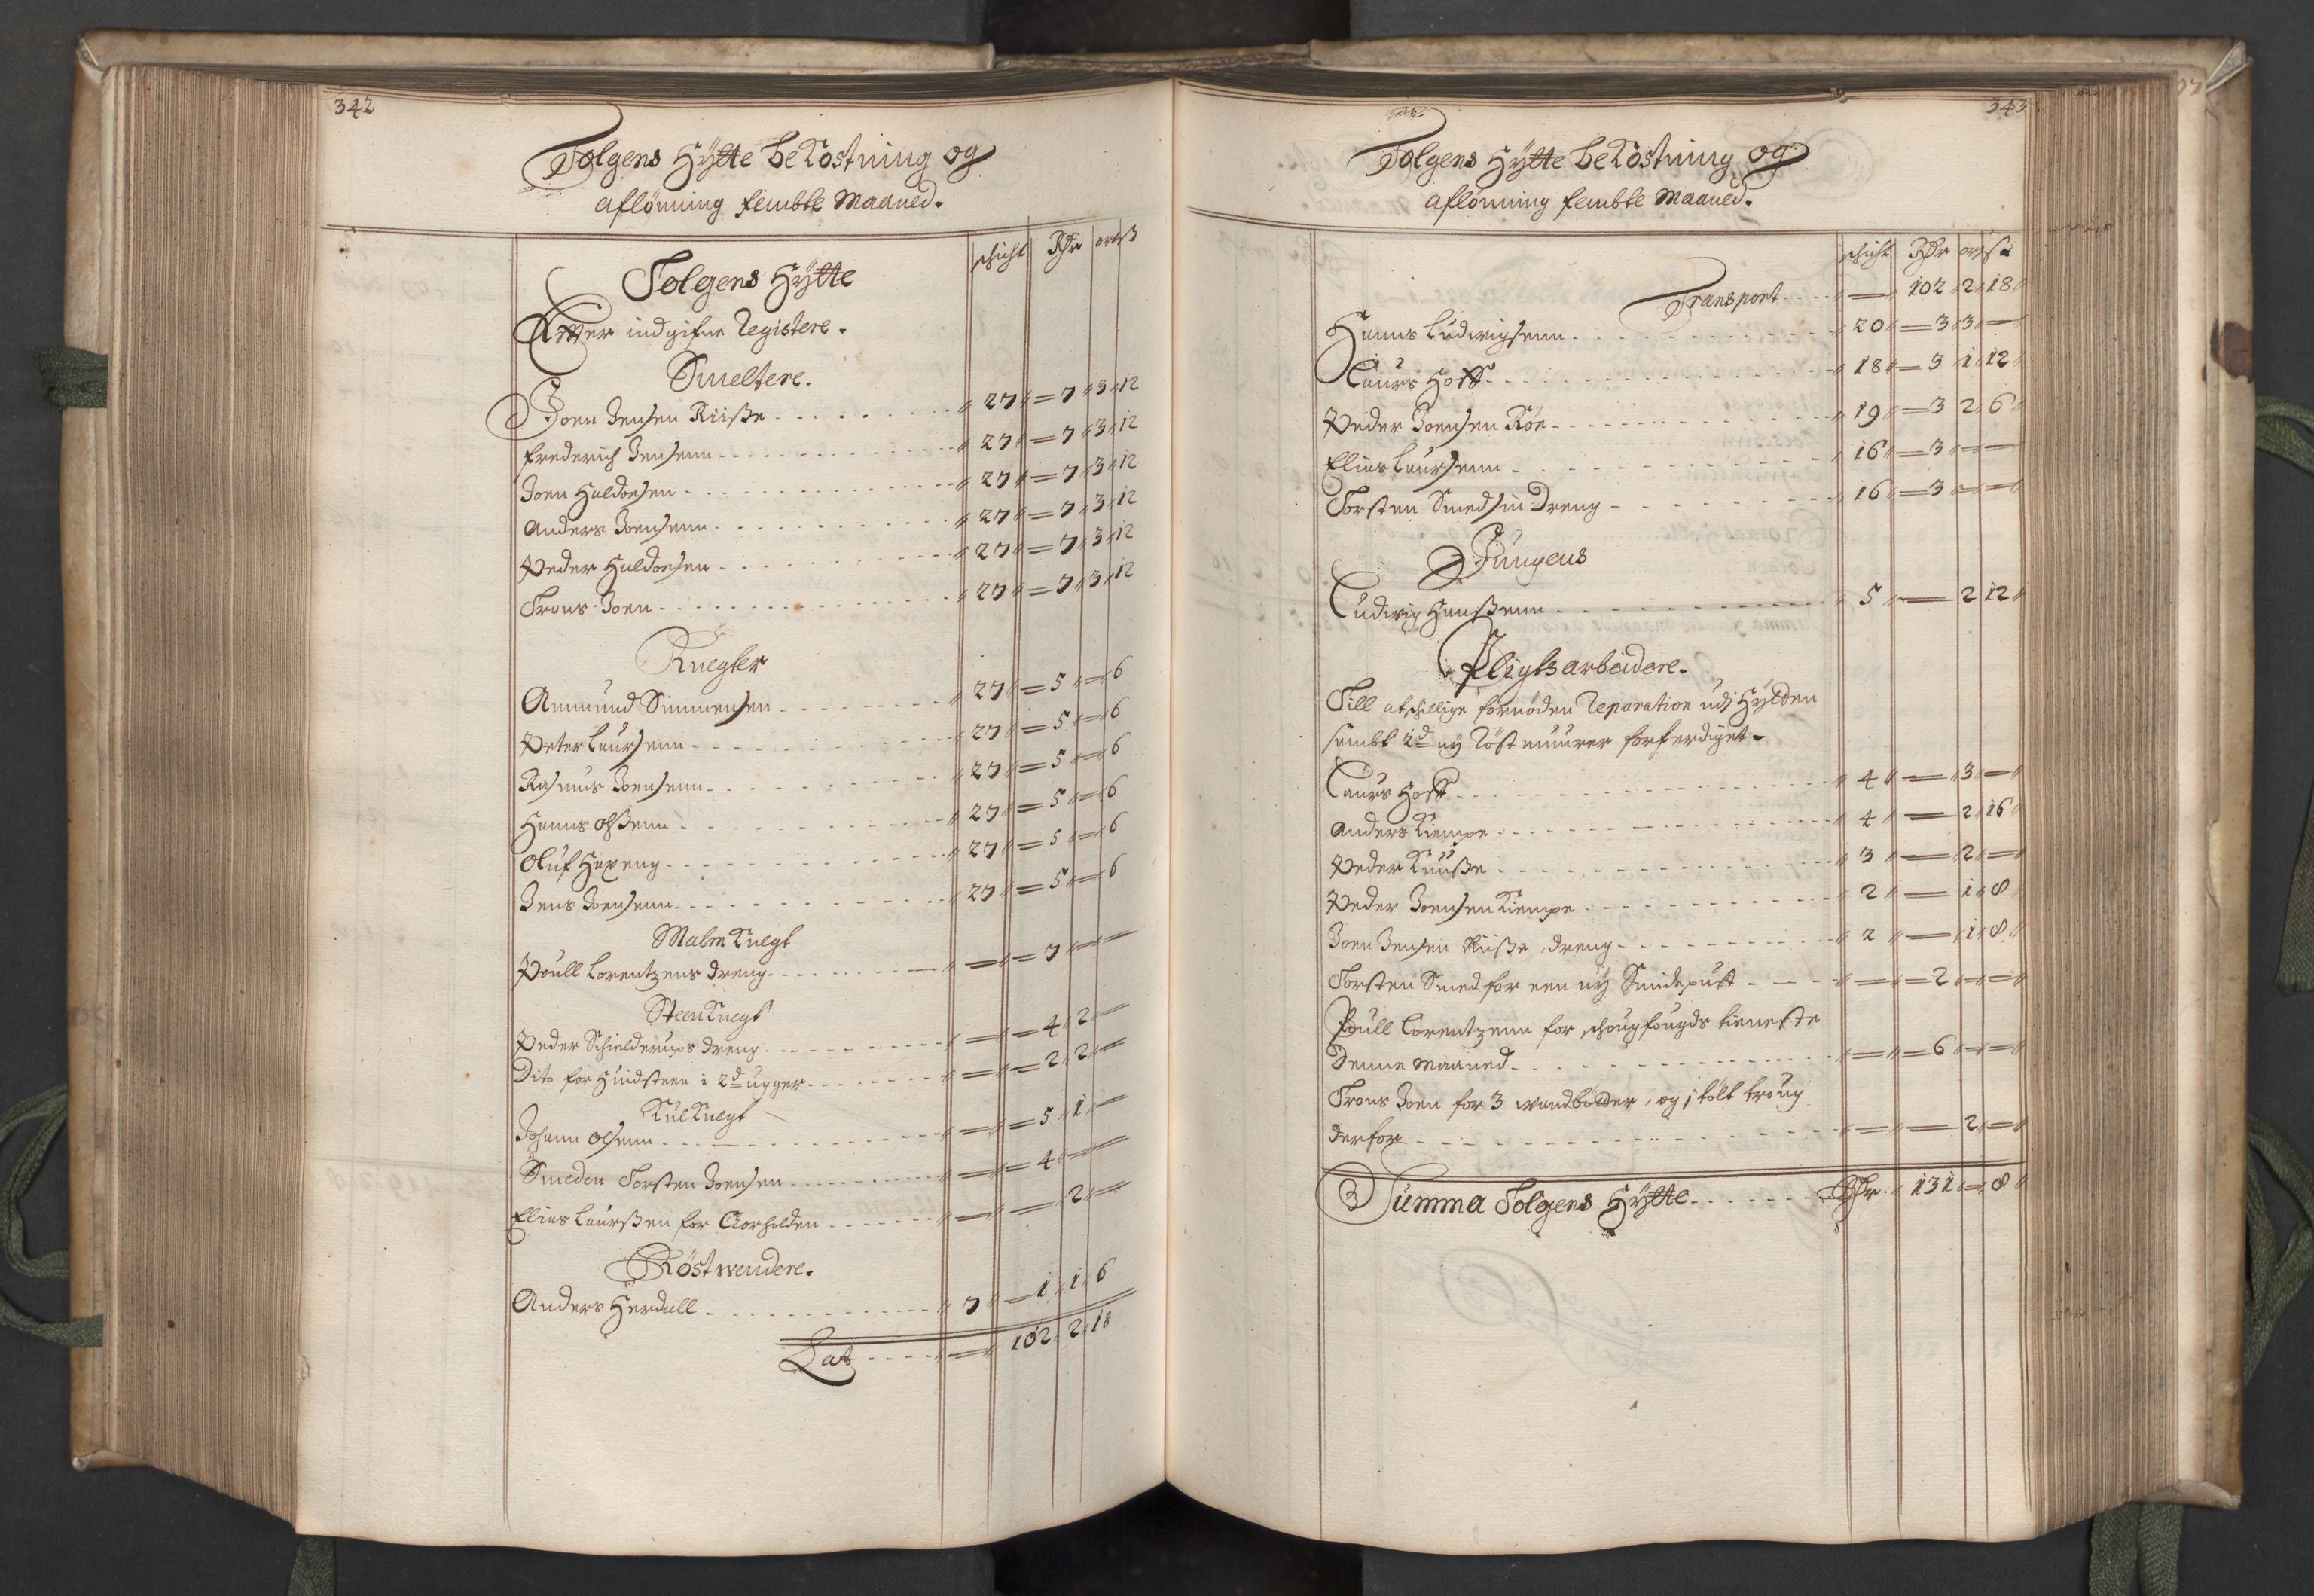 342
Tolgens Hÿtte beKostning og
aflønning fembte Maaned.
schicht Rdr ort ß
Tolgens Hÿtte
Efter indgifne Registere.
Smeltere.
Joen Jensen Riiße - - - 27 = 7 3 12
Frederich Jensenn - - - 27 = 7 3 12
Joen Haldorsen - - - 27 = 7 3 12
Anders Joensenn - - - 27 = 7 3 12
Peder Haldorsen - - - 27 = 7 3 12
Trons Joen - - - 27 = 7 3 12
Knegter
Ammund Simmensen - - - 27 = 5 = 6
Peter Laursenn - - - 27 = 5 = 6
Rasmus Joensenn - - - 27 = 5 = 6
Hanns olßenn - - - 27 = 5 = 6
Oluf Haxeng - - - 27 = 5 = 6
Jens Joensenn - - - 27 = 5 = 6
Malm Knegt
Poull Lorentzens dreng - - - = = 7 = =
Steen Knegt
Peder Schielderups dreng - - - = = 4 2 =
Dito for Huidsteen i 2d ugger - - - = = 2 2 =
Kul Knegt
Johann olsenn - - - = = 5 1 =
Smeden Torsten Joensen - - - = = 4 = =
Elias Laurßen for Aorholden - - - = = = 2 =
Röstwendere.
Anders Herdall - - - 7 = 1 1 6
Lat - - - = 102 2 18
343
Tolgens Hÿtte beKostning og
aflønning fembte Maaned.
schicht Rdr ort ß
Transport - - - = 102 2 18
Hanns Ludwigsenn - - - 20 = 3 3 =
Laurs Hoff - - - 18 = 3 1 12
Peder Joensen Röe - - - 19 = 3 2 6
Elias Laursenn - - - 16 = 3 = =
Torsten Smedsin Dreng - - - 16 = 3 = =
Jungens
Ludwig Hanßenn - - - 5 = 2 12
Pligtsarbeidere.
Till atschillige fornøden Reparation udj Hÿtden
sambt 2d nÿ Röst muurer forferdiget.
Laurs Hoff - - - 4 = 3 =
Anders Kiempe - - - 4 = 2 16
Peder Kuuße - - - 3 = 2 =
Peder Joensen Kiempe - - - 2 = 1 8
Joen Jensen Riiße, dreng - - - 2 = 1 8
Torsten Smed for een nÿ Smidepust - - - = = 2 = =
Poull Lorentzenn for schougfougds tieneste
Denne Maaned - - - = = 6 = =
Trons Joen for 3 wandbötter, og j tolt troug
derfor - - - = = 2 =
Summa Tolgens Hÿtte - - - Rdr 131 = 8